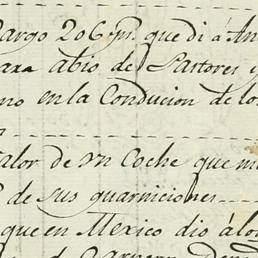 argo 206 ps. que di á An
ara abio de Pastores y
no en la Conducion de lo
alor de vn Coche que m
de sus guarniciones
que en Mexico dió á lo